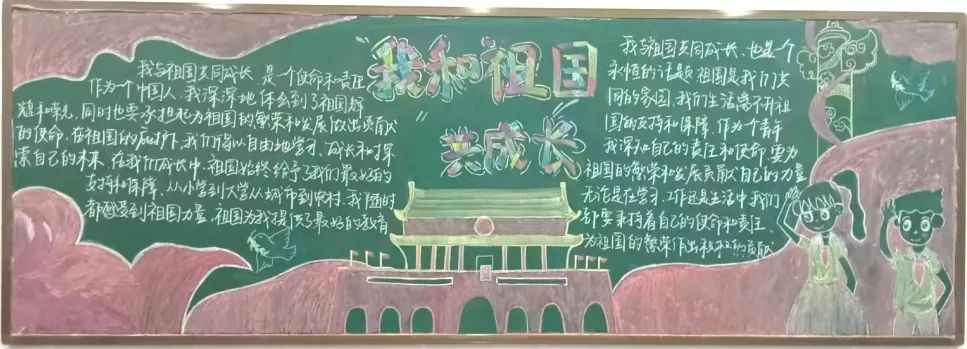 "我和祖国
共成长"
我与祖国共同成长，是一个使命和责任
作为一个中国人，我深深地体会到了祖国
和荣光，同时也要承担起为祖国的繁荣和发展做出贡献
的使命，在祖国的庇护下，我们得以自由地学习、成长和探
索自己的未来，在我们成长中，祖国始终给予了我们最好的
支持和保障，从小学到大学从城市到农村，我随时
都感受到祖国力量，祖国为我提供了最好的教育
我与祖国共同成长，也是一个
永恒的话题，祖国是我们共
同的家园，我们生活离不开祖
国的支持和保障，作为一个青年
我深知自己的责任和使命，要为
祖国的繁荣和发展贡献自己的力量
无论是在学习、工作还是生活中我们
都要秉持着自己的使命和责任，
为祖国的繁荣作出积极的贡献